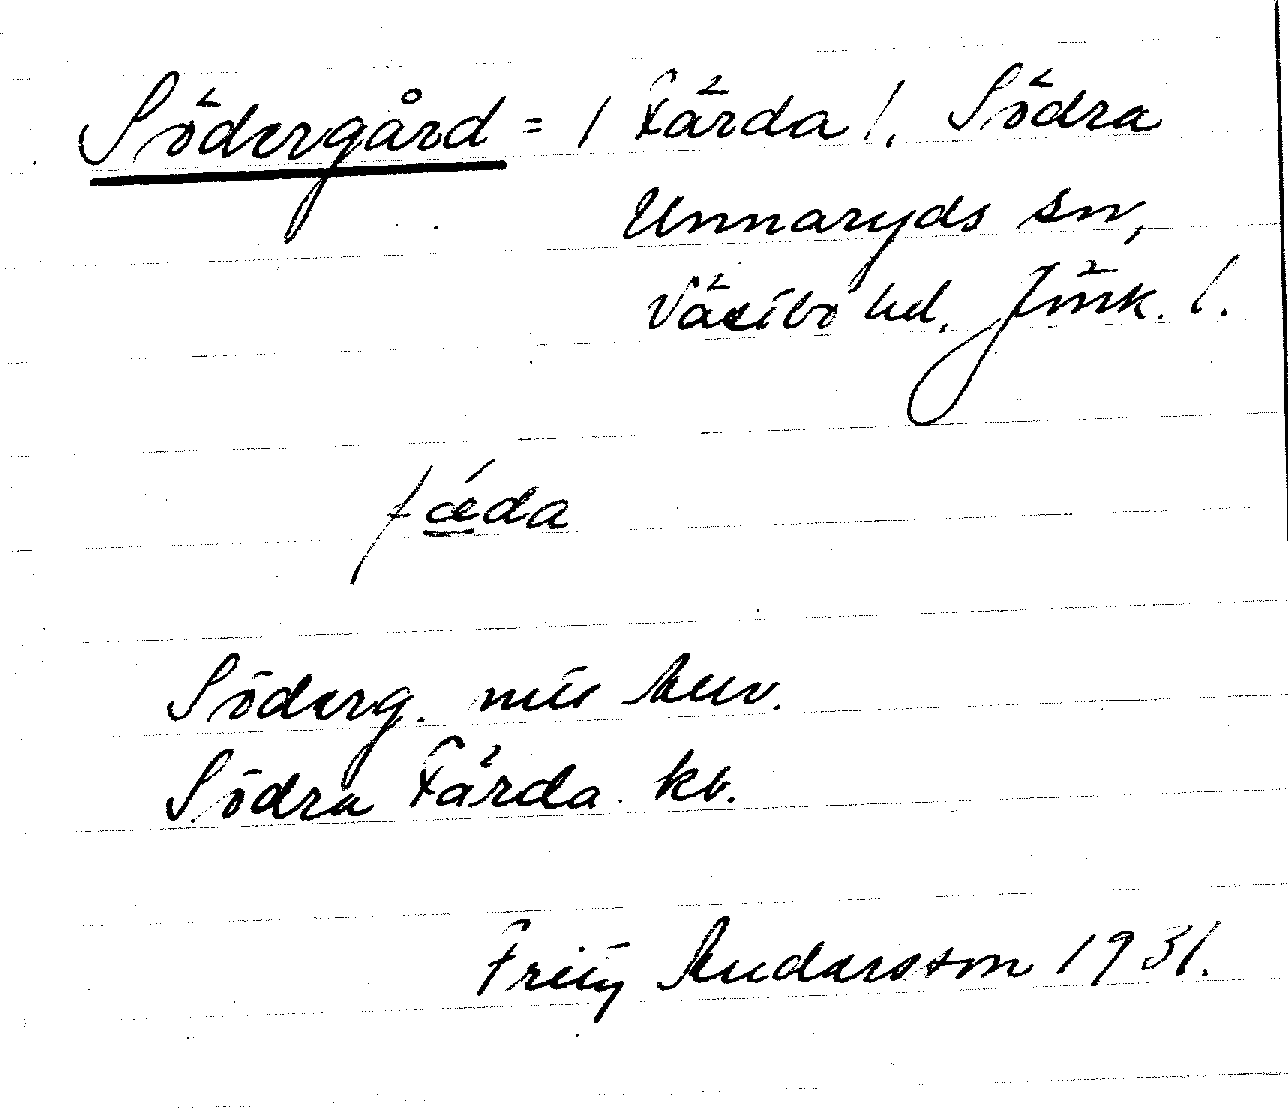 Södergård = / Färda /, Södra
Unnaryds sn,
Västbo hd. Jönk. l.
fǽ̲da
Söderg.
Södra Färda kb.
Andersson 1931.